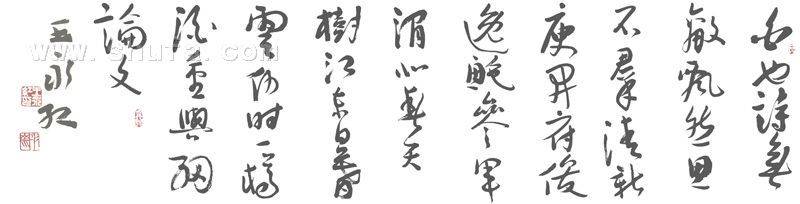 白也詩無
敵飄然思
不羣清新
庾開府俊
逸鮑參軍
渭北春天
樹江東日暮
雲何時一樽
酒重與細
論文